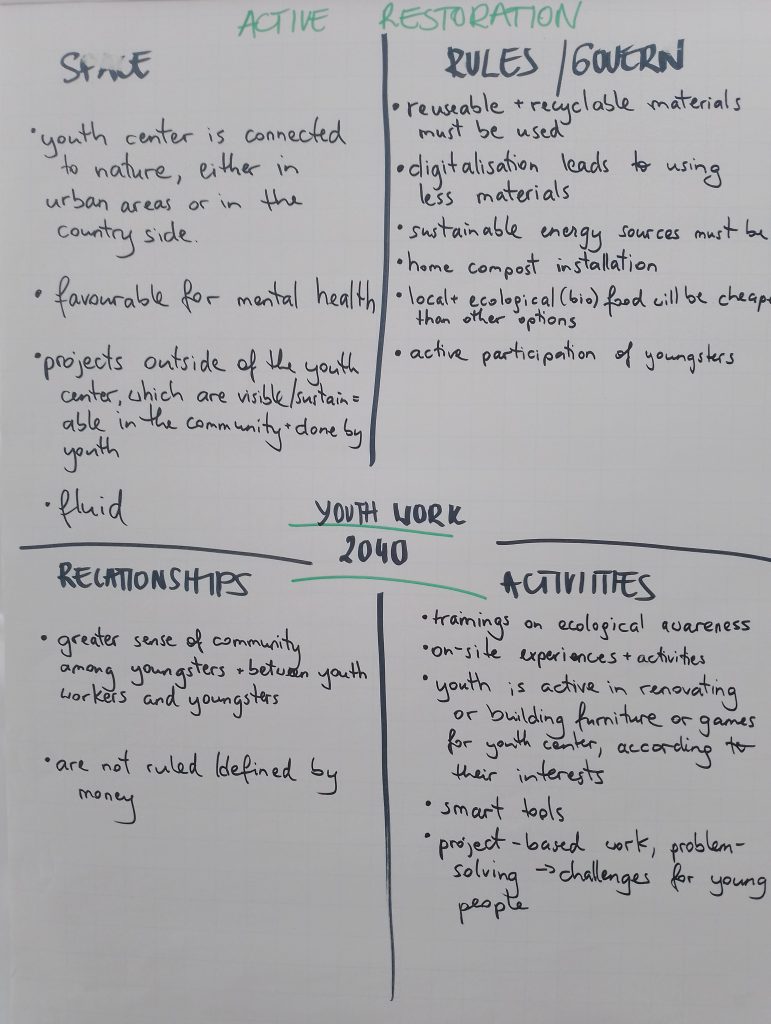 ACTIVE RESTORATION
SPACE
• youth center is connected
to nature, either in
urban areas or in the
country side.
• favourable for mental health
• projects outside of the youth
center, which are visible/sustain=
able in the community + done by
youth
• fluid
RULES / GOVERN
• reuseable + recyclable materials
must be used
• digitalisation leads to using
less materials
• sustainable energy sources must be
• home compost installation
• local + ecological (bio) food will be cheape
than other options
• active participation of youngsters
YOUTH WORK
2040
RELATIONSHIPS
• greater sense of community
among youngsters + between youth
workers and youngsters
• are not ruled /defined by
money
ACTIVITIES
• trainings on ecological awareness
• on-site experiences + activities
• youth is active in renovating
or building furniture or games
for youth center, according to
their interests
• smart tools
• project-based work, problem-
solving → challenges for young
people